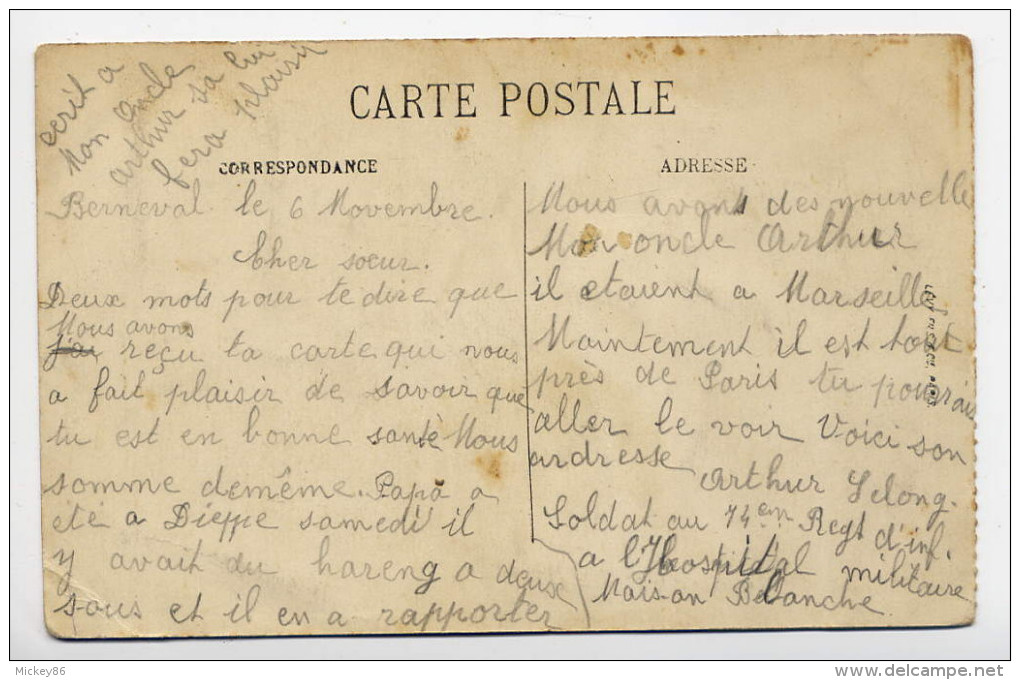 ecrit a
Mon Oncle
arthur sa lui
fera plaisir
CARTE POSTALE
CORRESPONDANCE
Berneval le 6 Novembre.
Cher soeur.
Deux mots pour te dire que
Nous avons
j'ai reçu ta carte qui nous
a fait plaisir de savoir que
tu est en bonne santè Nous
somme demême. Papa a
eté a Dieppe samedi il
y avait du hareng a deux
sous et il en a rapporter
ADRESSE
Nous avons des nouvelle
Mon oncle Arthur
il etaient a Marseille
Maintement il est tout
près de Paris tu pourrais
aller le voir Voici son
ardresse
Arthur Lelong.
Soldat au 74em Regt d'inf.
a l'Hospital militaire
Maison Blanche.
Mickey86
www.delcampe.net